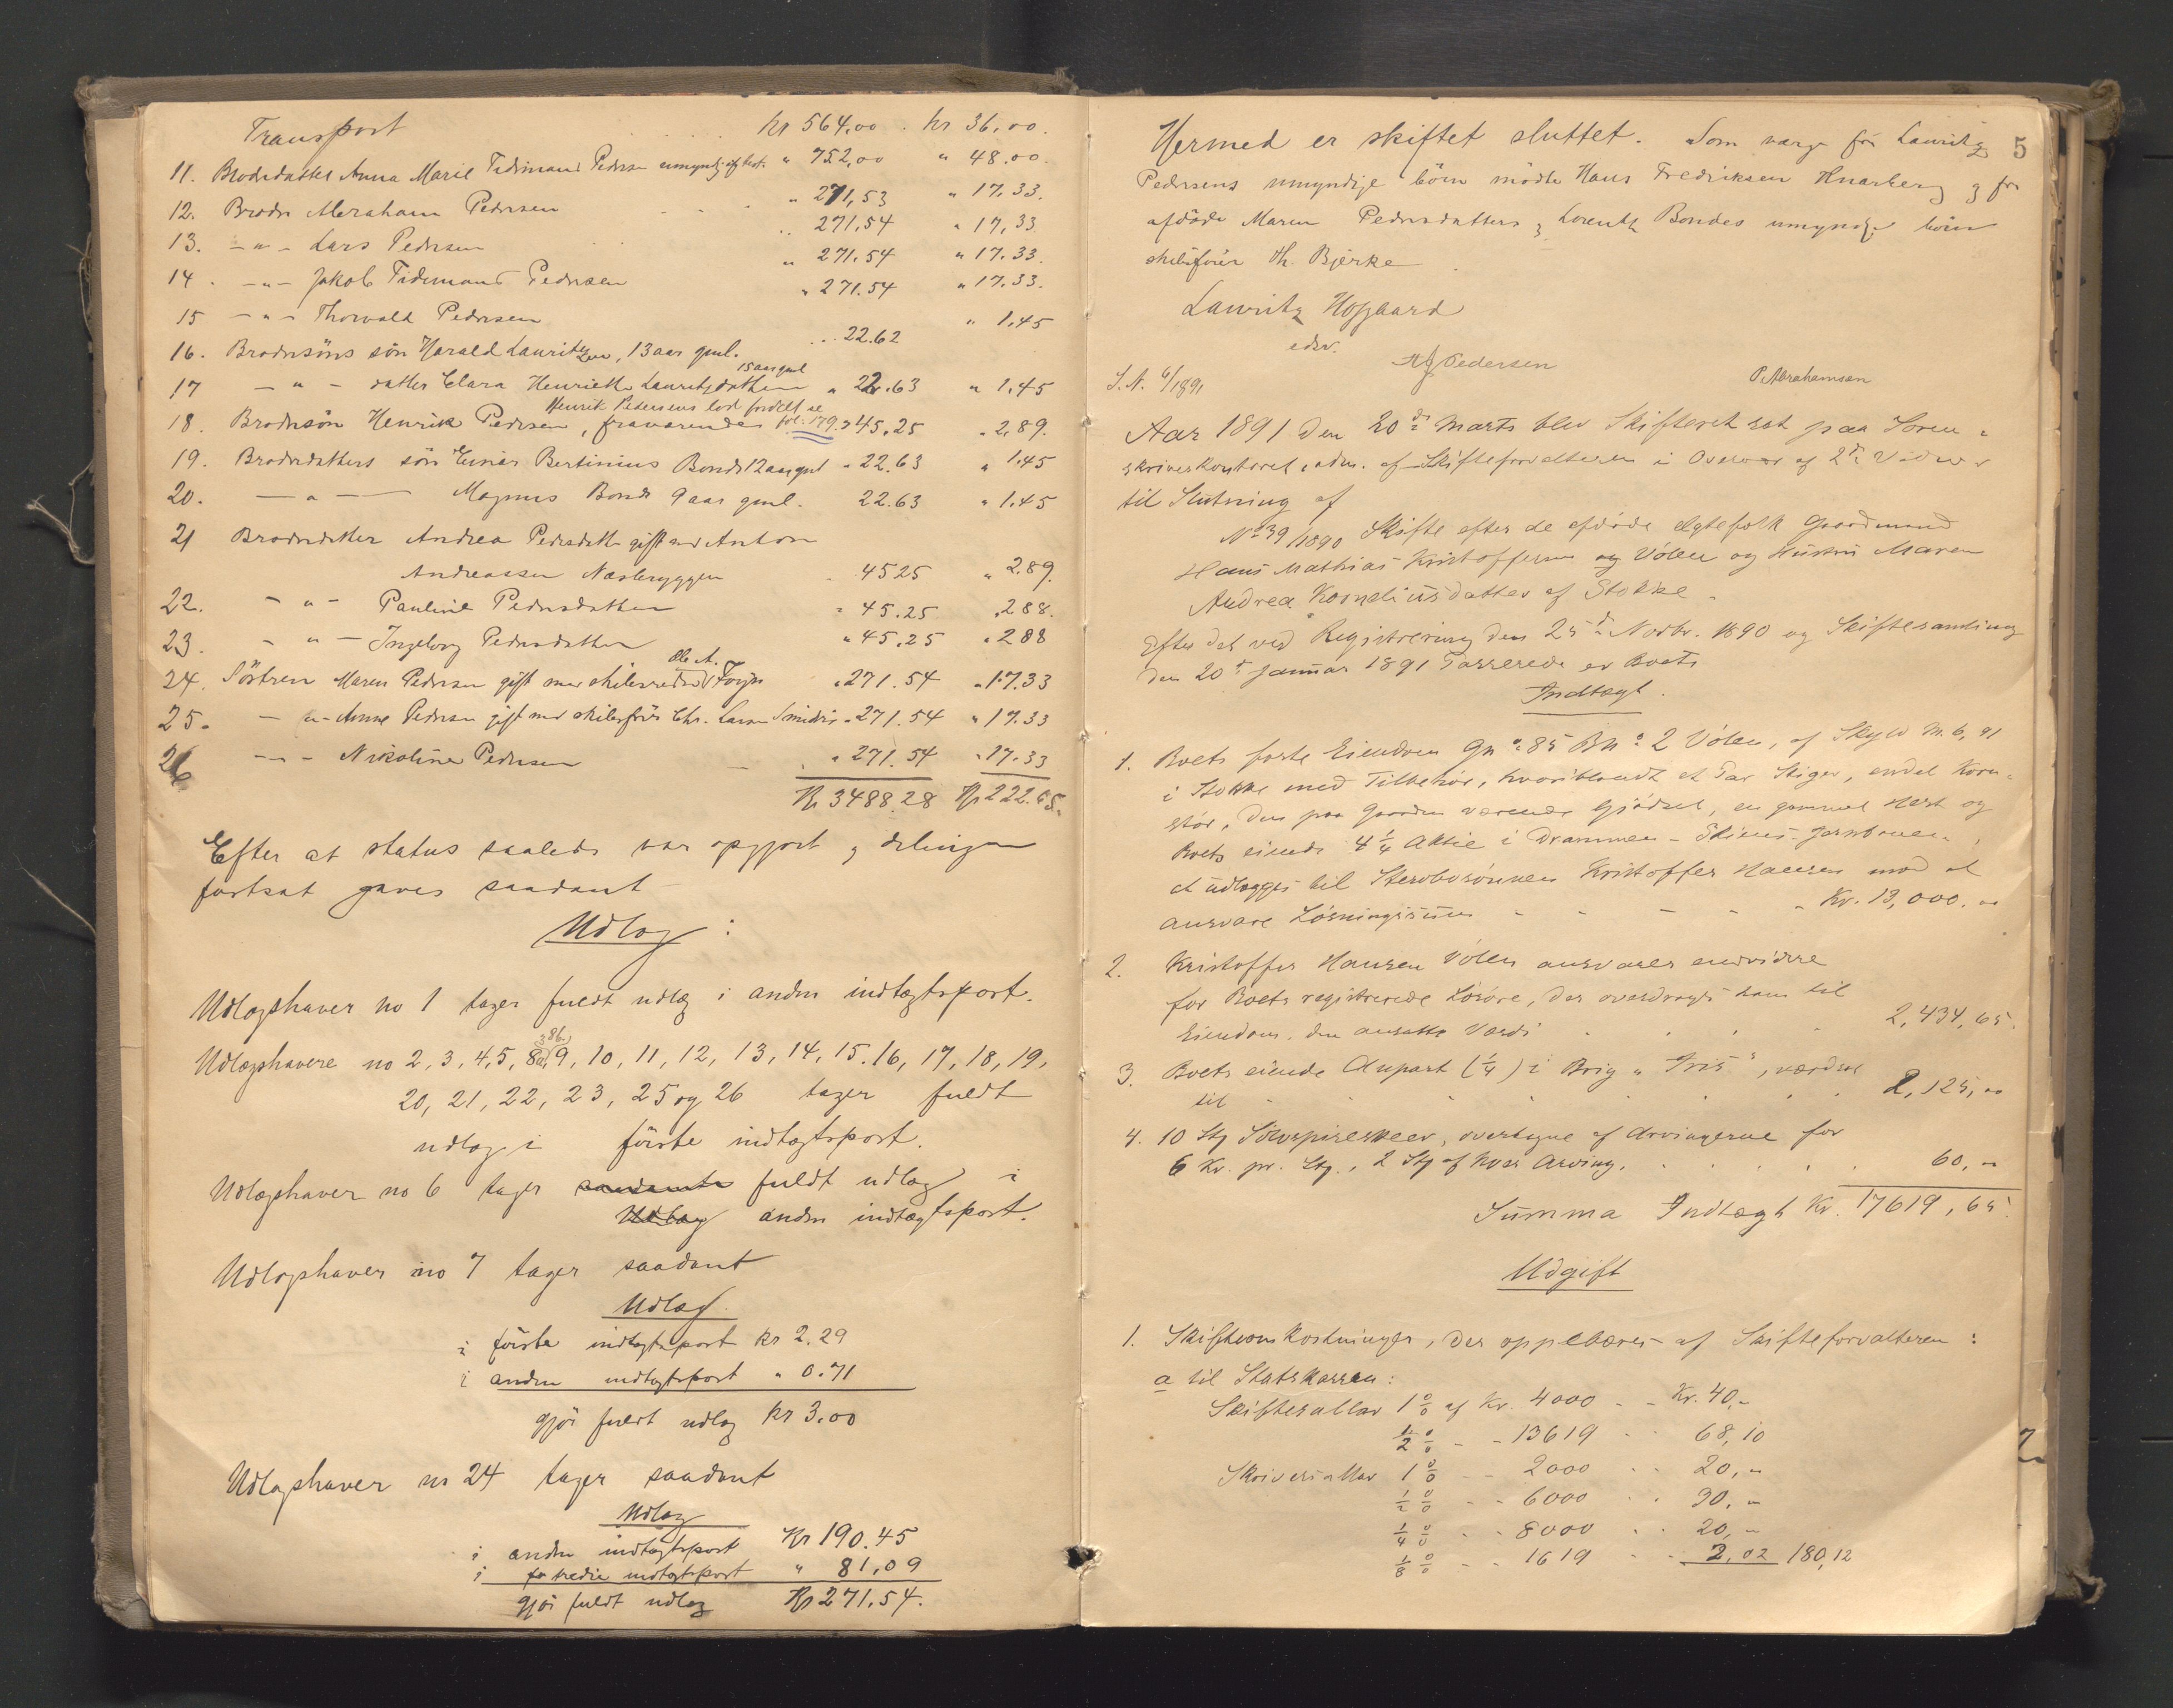 Transport kr 564,00 . kr 36,00.
11. Broderdatter Anna Marie Tidimand Pedersen umyndig af best. " 752,00 " 48.00.
12. Broder Abraham Pedersen " 271,53 " 17.33.
13. - " - Lars Pedersen " 271,54 " 17,33
14. - " - Jakob Tidemand Pedersen " 271.54 " 17.33.
15 - " - Thorvald Pedersen " 271.54 " 17.33.
16. Brodersöns sön Harald Lauritzen, 13 aar gml. " 22.62 " 1.45
15 aar gml
17 - " - datter Clara Henriette Lauritzdatter " 22.63 " 1.45
Henrik Pedersens lod fordelt se
18. Brodersön Henrik Pedersen, fraværende fol. 179. " 45.25 " 2.89.
19. Broderdatters sön Einar Bertinius Bonde 12 aar gml " 22.63 " 1.45
20. - " - Magnus Bonde 9 aar gml. 22.63 " 1.45
21 Broderdatter Andrea Pedersdatter gift med Anton
Andreassen Næsbryggen 45 25 " 2.89.
22. - " - Pauline Pedersdatter " 45.25 " 2.88.
23. - " - Ingeborg Pedersdatter " 45.25 " 2 88
Ole A.
24. Söstren Maren Pedersen gift med skibsreder Foyn " 271.54 " 17.33
25. - " - Anne Pedersen gift med skibsförer Chr. Larsen " 271.54 " 17.33
26 - " - Nikoline Pedersen " 271.54 " 17.33
Kr 3488.28 Kr 222.65.
Efter at status saaledes var opgjort og delingen
fortsat gaves saadant
Udlæg:
Udlægshaver no 1 tager fuldt udlæg i anden indtægtspost.
Udlægshavere no 2, 3, 4, 5, 8a, 8b, 9, 10, 11, 12, 13, 14, 15. 16, 17, 18, 19,
20, 21, 22, 23, 25 og 26 tager fuldt
udlæg i förste indtægtspost.
Udlægshaver no 6 tager saadant fuldt udlæg i
Udlæg anden indtægtspost.
Udlægshaver no 7 tager saadant
Udlæg.
i förste indtægtspost kr 2.29
i anden indtægtspost " 0.71
gjör fuldt udlæg kr 3.00
Udlægshaver no 24 tager saadant
Udlæg
i anden indtægtspost Kr 190.45
i tredie indtægtspost " 81,09
gjör fuldt udlæg Kr 271.54.
5
Hermed er skiftet sluttet. Som værge for Lauritz
Pedersens umyndige börn mödte Hans Fredriksen Knarberg og for
afdöde Maren Pedersdatters og Lorentz Bondes umyndige börn
skibsförer Th. Bjerke
Lauritz Hofgaard
edsv.
HJPedersen
P. Abrahamsen
S. N. 6/1891
Aar 1891 den 20de Marts blev Skifteret sat paa Soren-
skriverkontoret, adm. af Skifteforvalteren i Overvær af 2de Vidner
til Slutning af
No 39/1890 Skifte efter de afdöde egtefolk Gaardmand
Hans Mathias Kristoffersen og Vólen og Hustru Maren
Andrea Korneliusdatter af Stokke.
Efter det ved Registrering den 25de Novbr. 1890 og Skiftesamling
den 20de Januar 1891 Passerede er Boets
Indtægt.
1. Boets faste Eiendom Gn° 85 Bn° 2 Vólen, af Skyld M. 6, 91
i Stokke med Tilbehör, hvoriblandt et Par Stiger, endel Korn-
stör, den paa Gaarden værende Gjödsel, en gammel Hest og
Boets eiende 4 1/4 Aktie i Drammen - Skiens - Jernbanen,
at udlægges til Stervbosönnen Kristoffer Hansen mod at
ansvare Lösningssum - - - - Kr. 13,000. "
2. Kristoffer Hansen Vólen ansvarer endvidere
for Boets registrerede Lösöre, der overdrages ham til
Eiendom, den ansatte Værdi 2,434,65.
3. Boets eiende Anpart (1/4) i Brig "Iris", værdsat
til 2,125, "
4. 10 Stz Sölvspiseskeer, overtagne af Arvingerne for
6 Kr. pr. Stz., 2 Stz af hver Arving. 60, "
Summa Indtægt Kr. 17619,65.
Udgift
1. Skifteomkostninger, der oppebæres af Skifteforvalteren:
a til Statskassen:
Skiftesallar 1 % af Kr. 4000 - - Kr. 40. "
1/2 % - - 13619 - - 68,10
Skriversallar 1 % - - 2000 - - 20, "
1/2 % - - 6000 - - 30, "
1/4 % - - 8000 - - 20, "
1/8 % - - 1619 - - 2,02 180,12